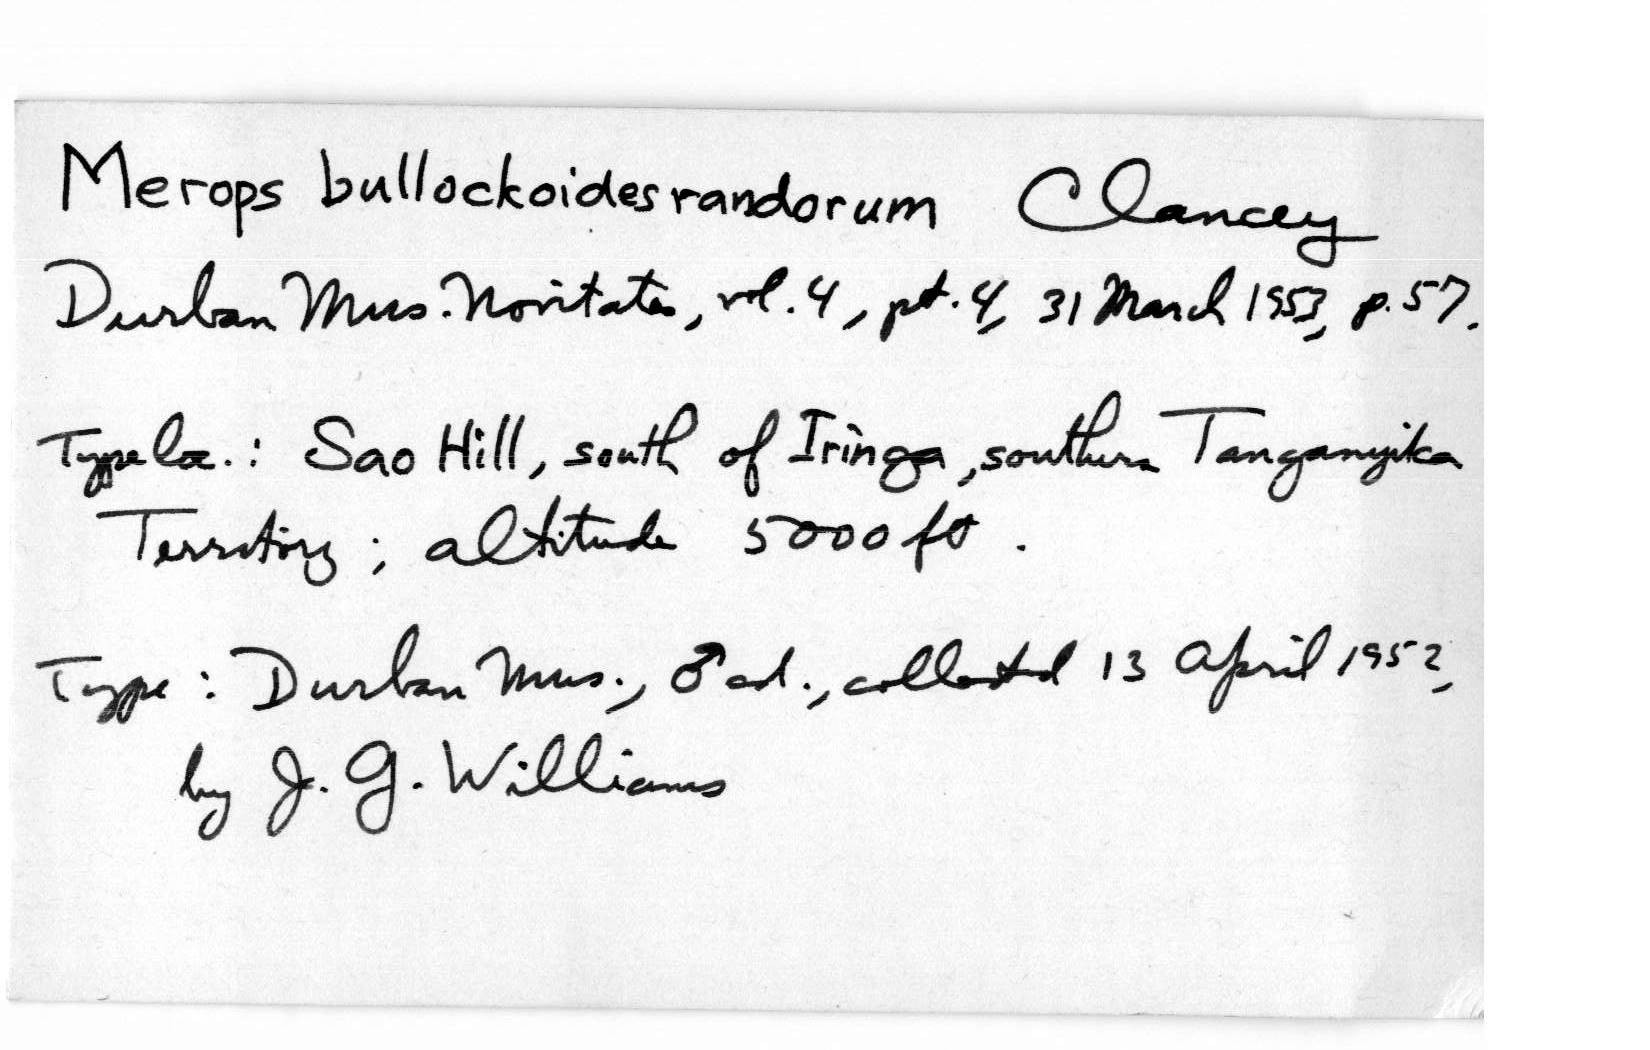 Merops bullockoides randorum Clancey
Durban Mus. Novitates, vol. 4, pt. 4, 31 March 1953, p. 57.
Type loc.: Sao Hill, south of Iringa, southern Tanganyika
Territory; altitude 5000 ft.
Type: Durban Mus., ♂ ad., collected 13 April 1952,
by J. G. Williams